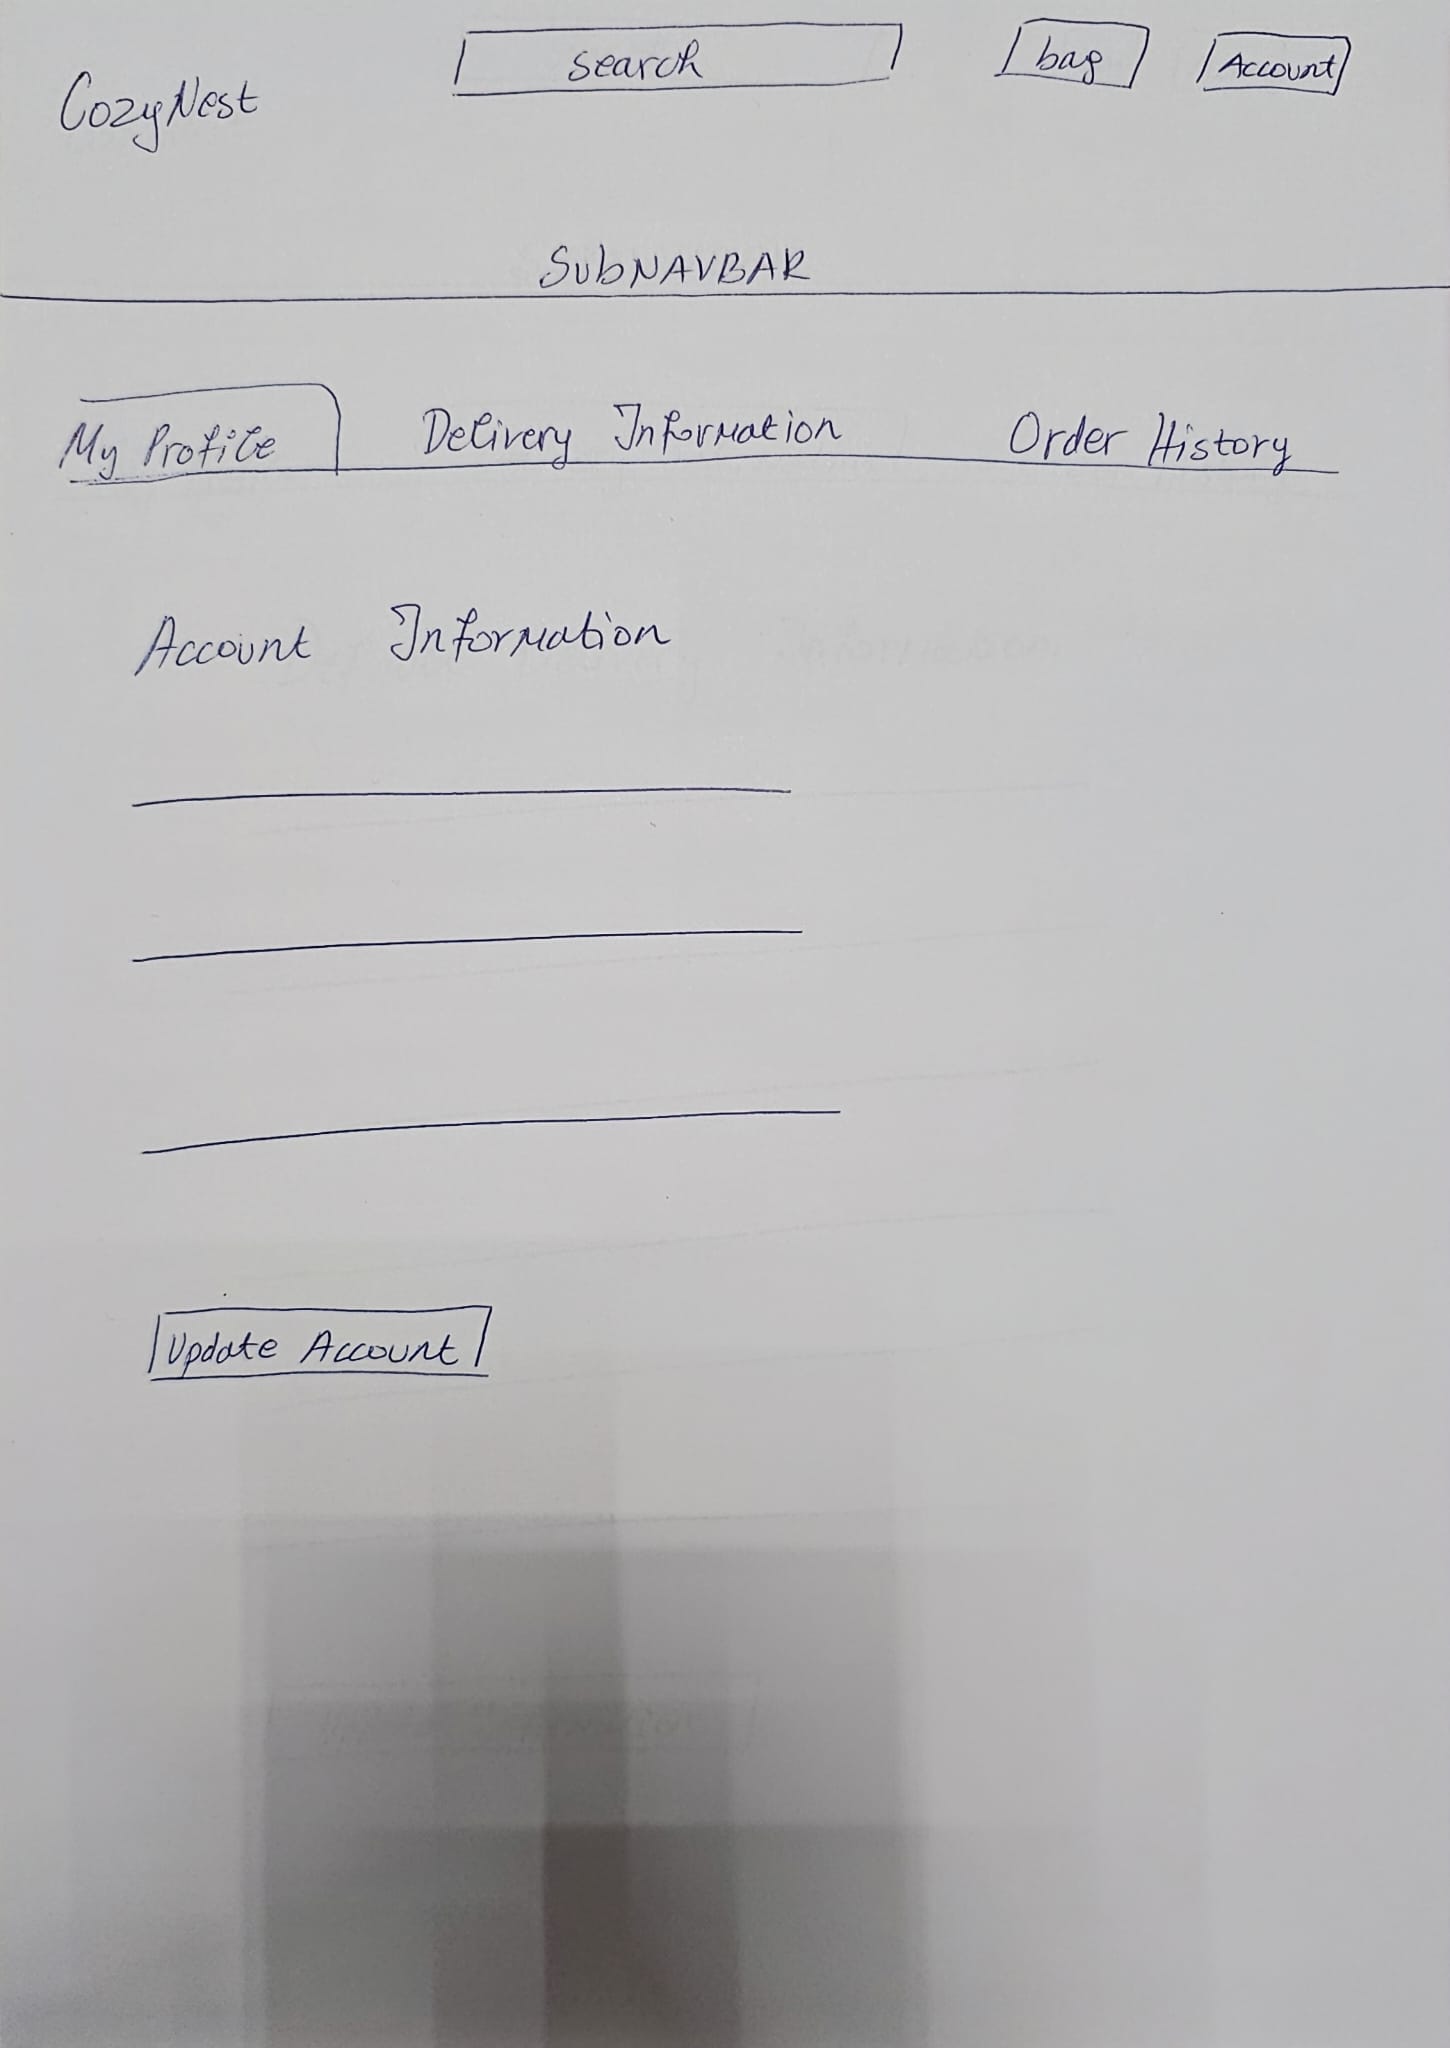 CozyNest
search
bag
Account
SubNAVBAR
My Profile
Delivery Information
Order History
Account Information
Update Account